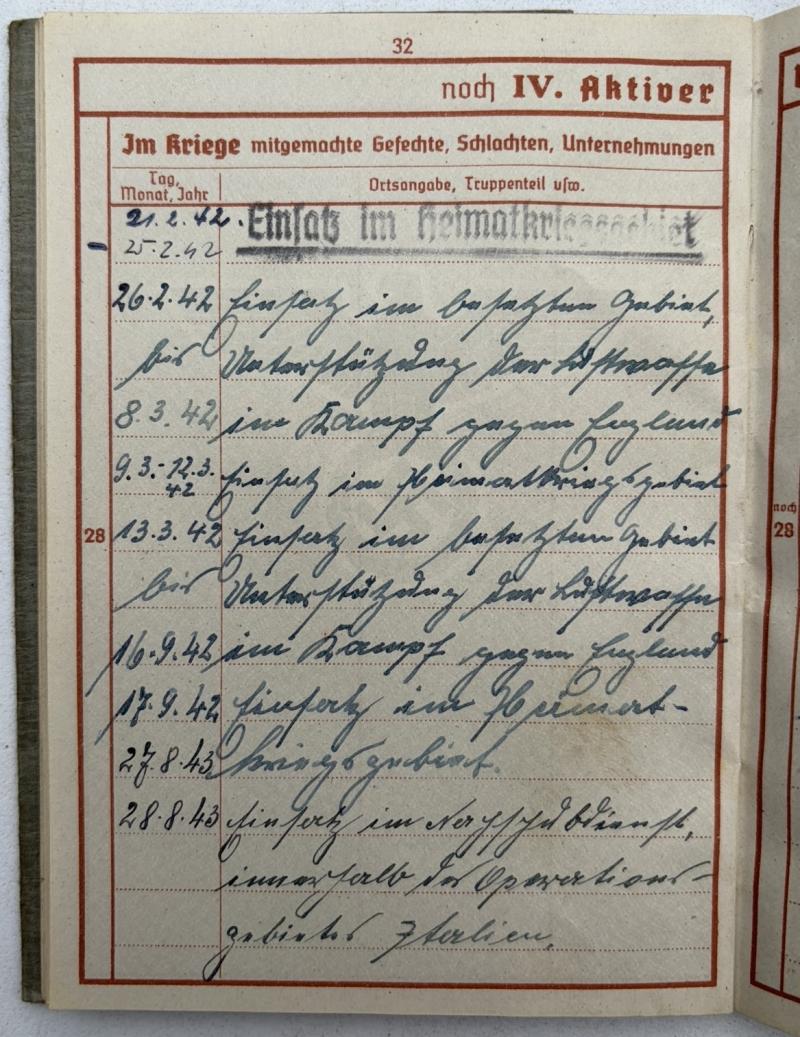 32
noch IV. Aktiver
Im Kriege mitgemachte Gefechte, Schlachten, Unternehmungen
Tag, Monat, Jahr
Ortsangabe, Truppenteil usw.
21.2.42. Einsatz im Heimatkriegsgebiet
- 25.2.42
26.2.42 Einsatz im besetzten Gebiet,
bis Unterstützung der Luftwaffe
8.3.42 im Kampf gegen England
9.3.-12.3.42 Einsatz im Heimatkriegsgebiet
28 13.3.42 Einsatz im besetzten Gebiet
bis Unterstützung der Luftwaffe
16.9.42 im Kampf gegen England
17.9.42 Einsatz im Heimat-
27.8.43 kriegsgebiet.
28.8.43 Einsatz im Nachschubdienst,
innerhalb des Operations-
gebietes Italien.
noch
28